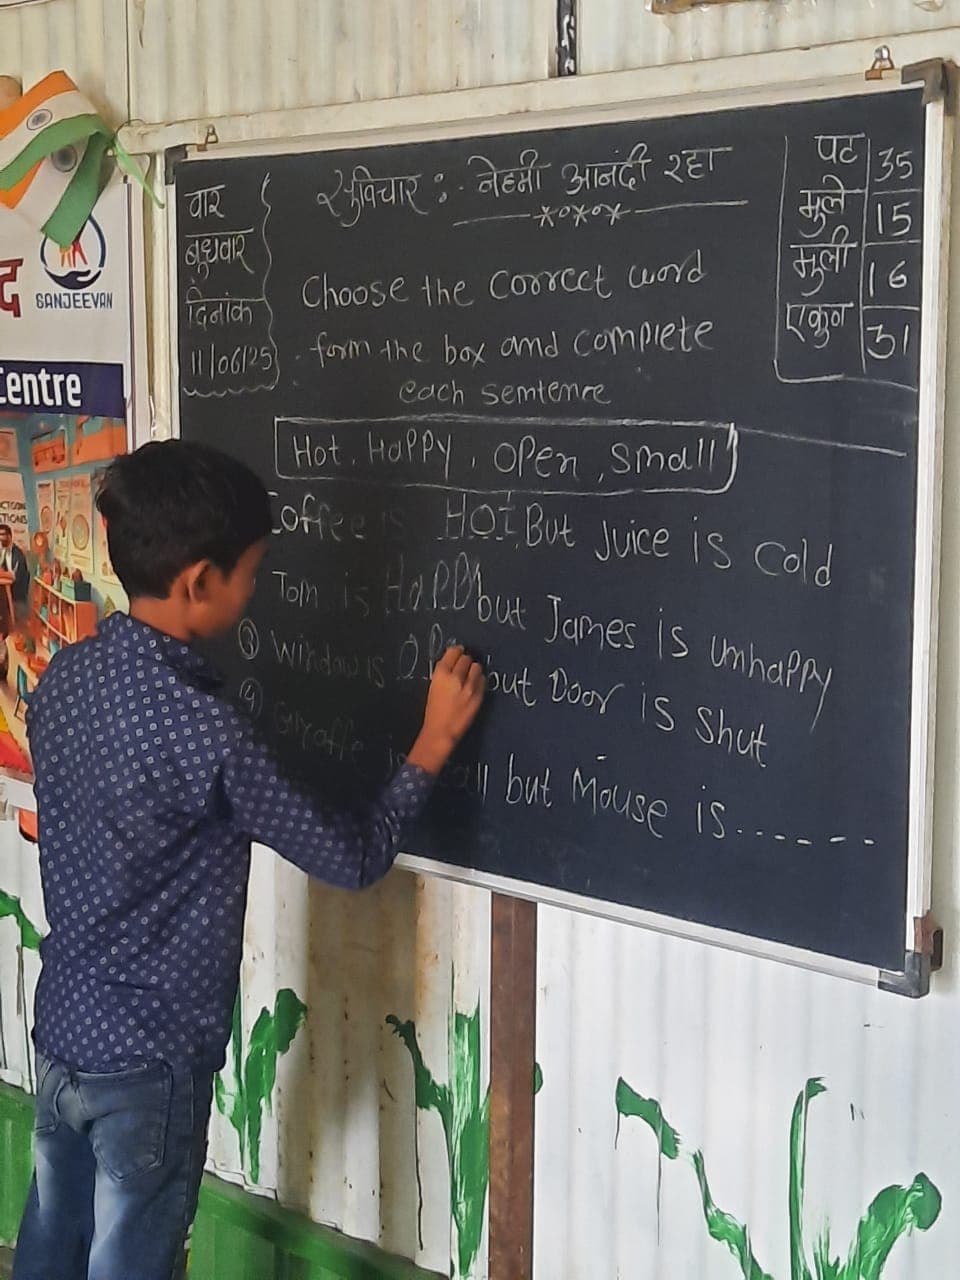 वार
बुधवार
दिनांक
11/06/25
सुविचार :- नेहमी आनंदी रहा
पट 35
मुले 15
मुली 16
एकुण 31
Choose the correct word
form the box and complete
each semtence
Hot, Happy, Open, Small
Coffee is HOT But Juice is cold
Tom is Happy but James is unhappy
③ Window is but Door is Shut
④ Giraffe is but Mouse is......
SANJEEVAN
द
Centre